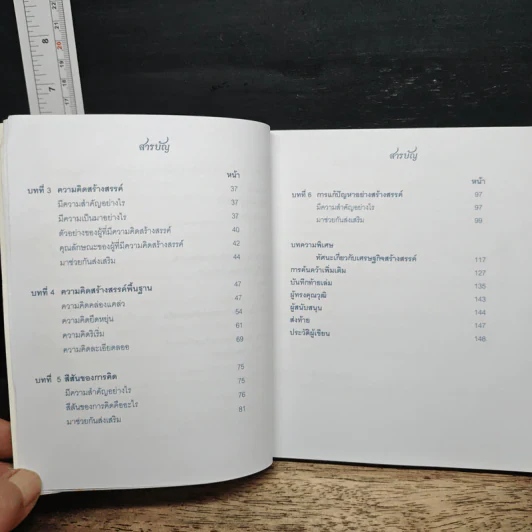 สารบัญ
หน้า
บทที่ 3 ความคิดสร้างสรรค์ 37
มีความสำคัญอย่างไร 37
มีความเป็นมาอย่างไร 37
ตัวอย่างของผู้ที่มีความคิดสร้างสรรค์ 40
คุณลักษณะของผู้ที่มีความคิดสร้างสรรค์ 42
มาช่วยกันส่งเสริม 44
บทที่ 4 ความคิดสร้างสรรค์พื้นฐาน 47
ความคิดคล่องแคล่ว 47
ความคิดยืดหยุ่น 54
ความคิดริเริ่ม 61
ความคิดละเอียดลออ 69
บทที่ 5 สีสันของการคิด 75
มีความสำคัญอย่างไร 75
สีสันของการคิดคืออะไร 76
มาช่วยกันส่งเสริม 81
สารบัญ
หน้า
บทที่ 6 การแก้ปัญหาอย่างสร้างสรรค์ 97
มีความสำคัญอย่างไร 97
มาช่วยกันส่งเสริม 99
บทความพิเศษ
ทัศนะเกี่ยวกับเศรษฐกิจสร้างสรรค์ 117
การค้นคว้าเพิ่มเติม 127
บันทึกท้ายเล่ม 135
ผู้ทรงคุณวุฒิ 143
ผู้สนับสนุน 144
ส่งท้าย 147
ประวัติผู้เขียน 148
8
7